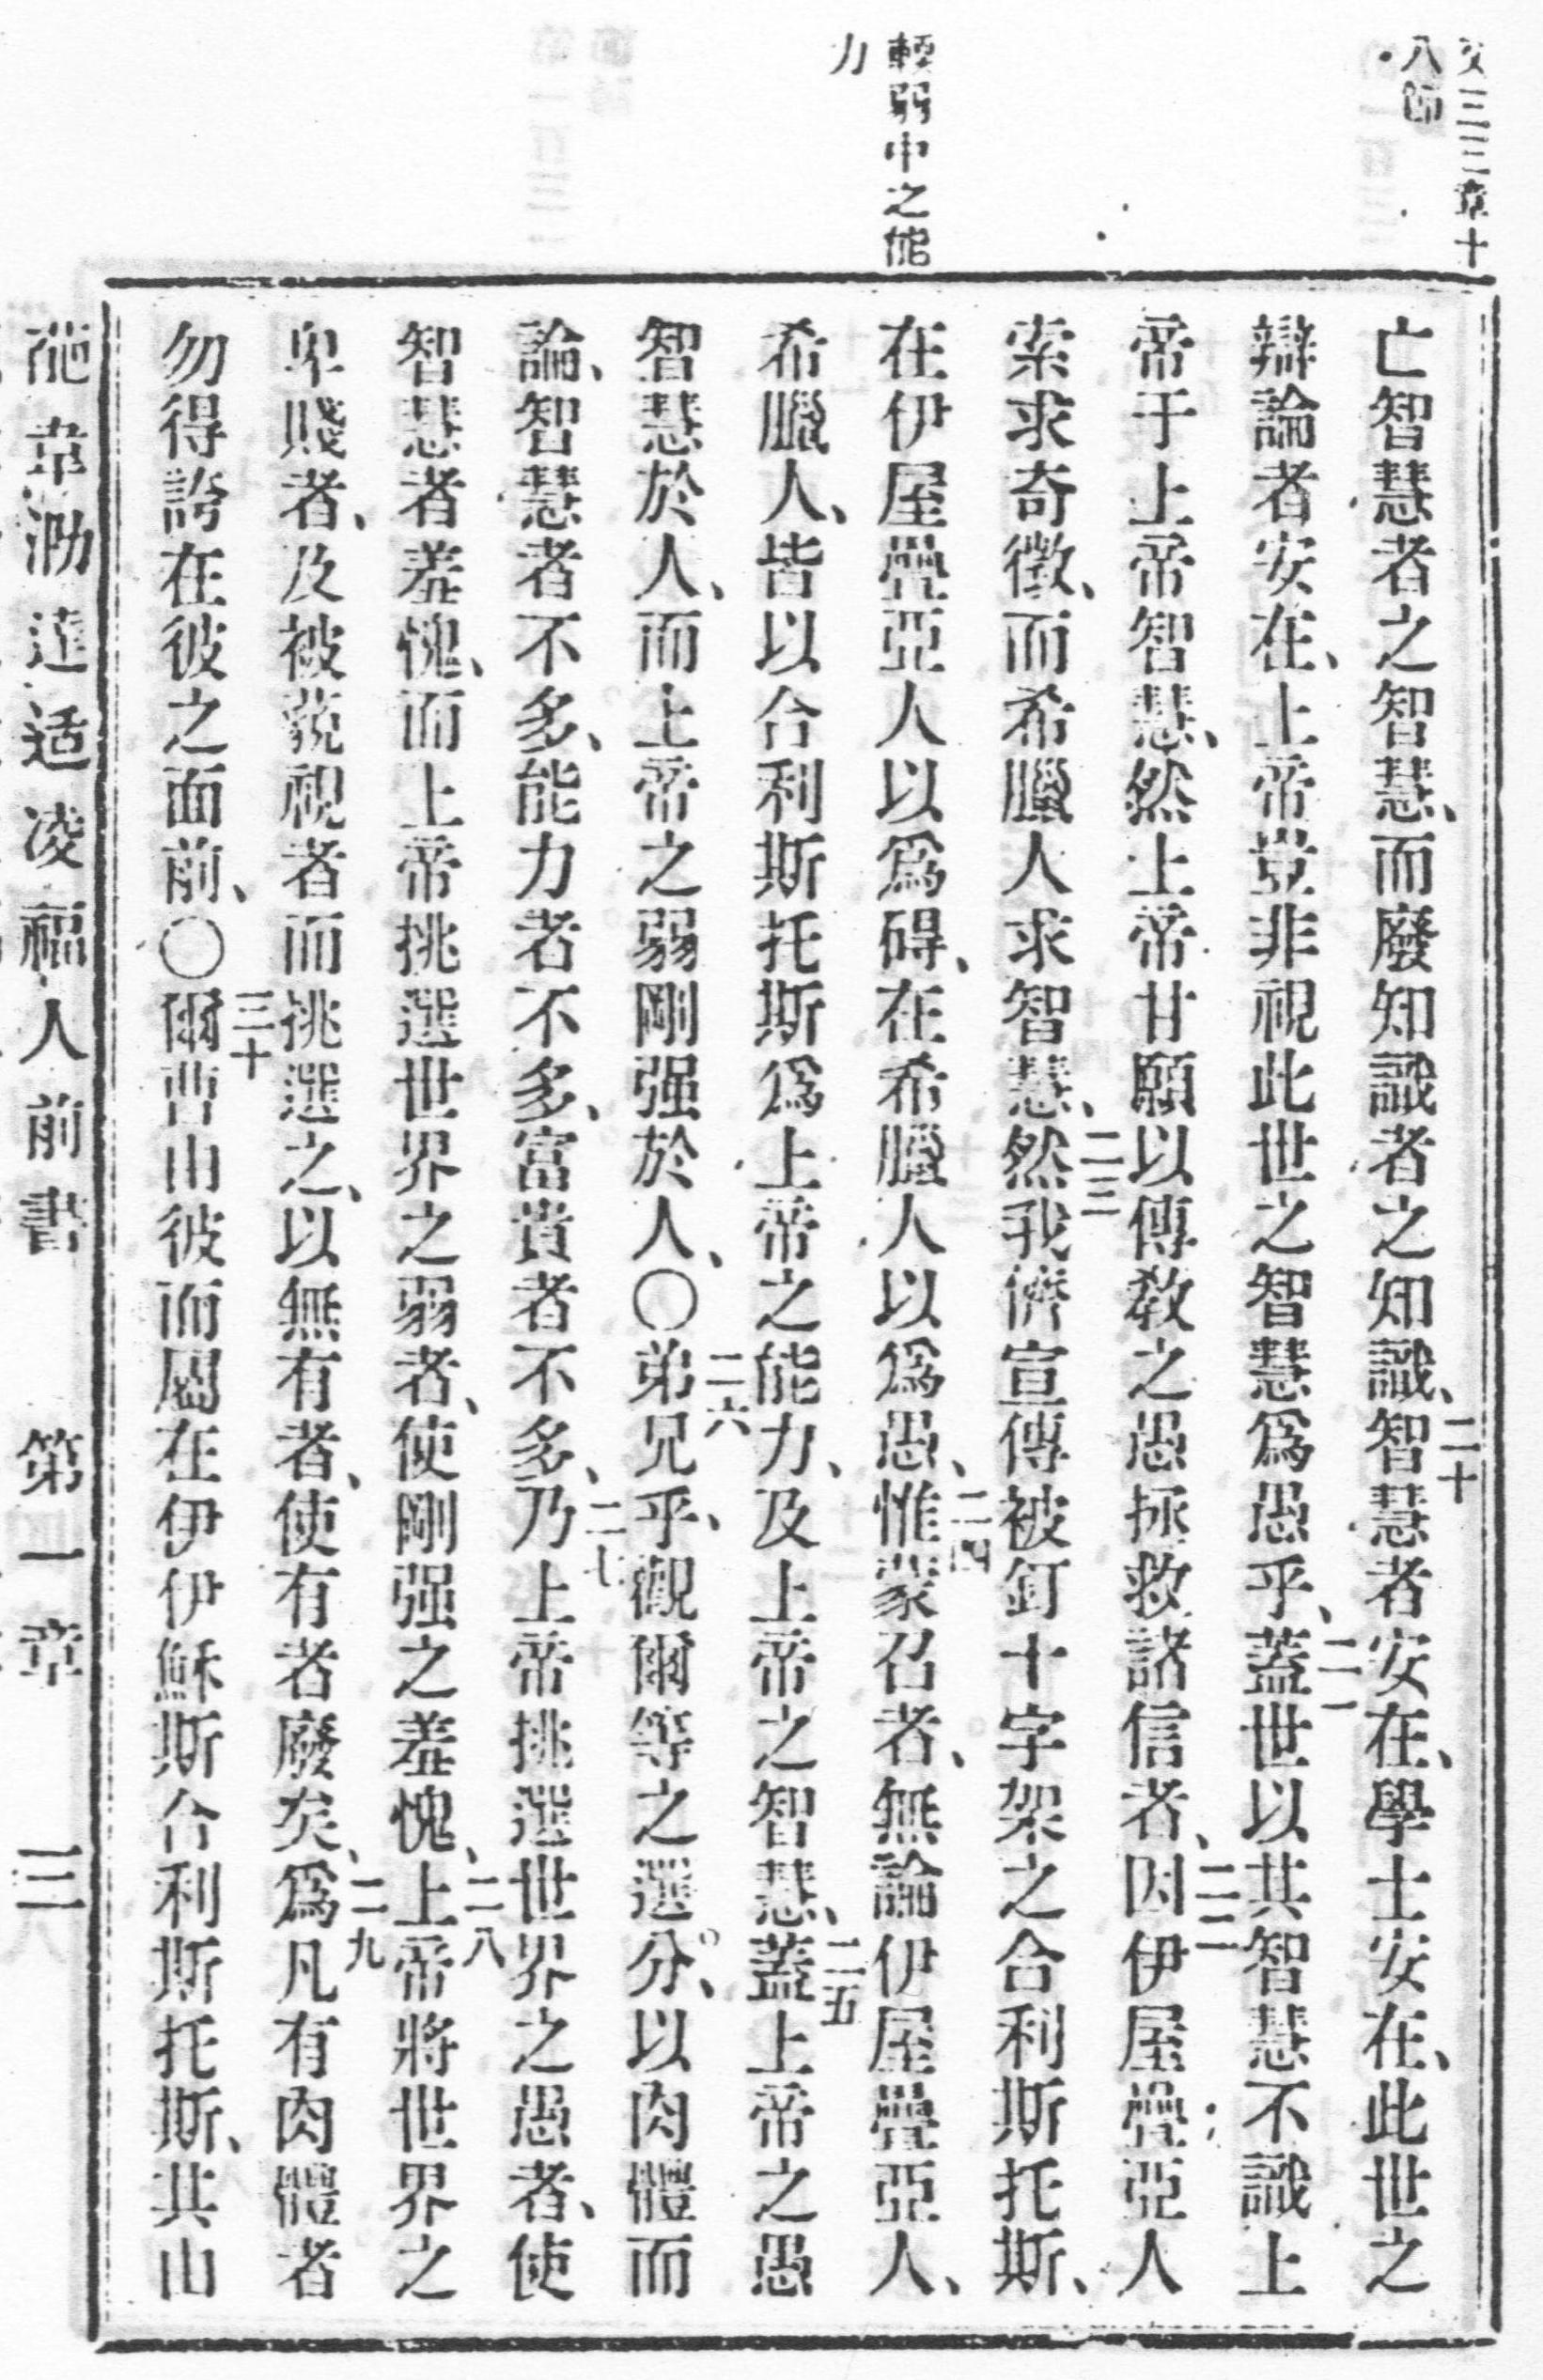 三三章十
八節
輭弱中之能
力
亡智慧者之智慧、而廢知識者之知識、二十智慧者安在、學士安在、此世之
辯論者安在、上帝豈非視此世之智慧爲愚乎、二一蓋世以其智慧不識上
帝于上帝智慧、然上帝甘願以傳敎之愚拯救諸信者、二二因伊屋疊亞人
索求奇徵、而希臘人求智慧、二三然我儕宣傳被釘十字架之合利斯托斯、
在伊屋疊亞人以爲碍、在希臘人以爲愚、二四惟蒙召者、無論伊屋疊亞人、
希臘人、皆以合利斯托斯爲上帝之能力、及上帝之智慧、二五蓋上帝之愚
智慧於人、而上帝之弱剛强於人、〇二六弟兄乎、觀爾等之選分、以肉體而
論、智慧者不多、能力者不多、富貴者不多、二七乃上帝挑選世界之愚者、使
智慧者羞愧、而上帝挑選世界之弱者、使剛强之羞愧、二八上帝將世界之
卑賤者、及被藐視者而挑選之、以無有者、使有者廢矣、二九爲凡有肉體者
勿得誇在彼之面前、〇三十爾曹由彼而屬在伊伊穌斯合利斯托斯、其由
達适凌福人前書 第一章 三